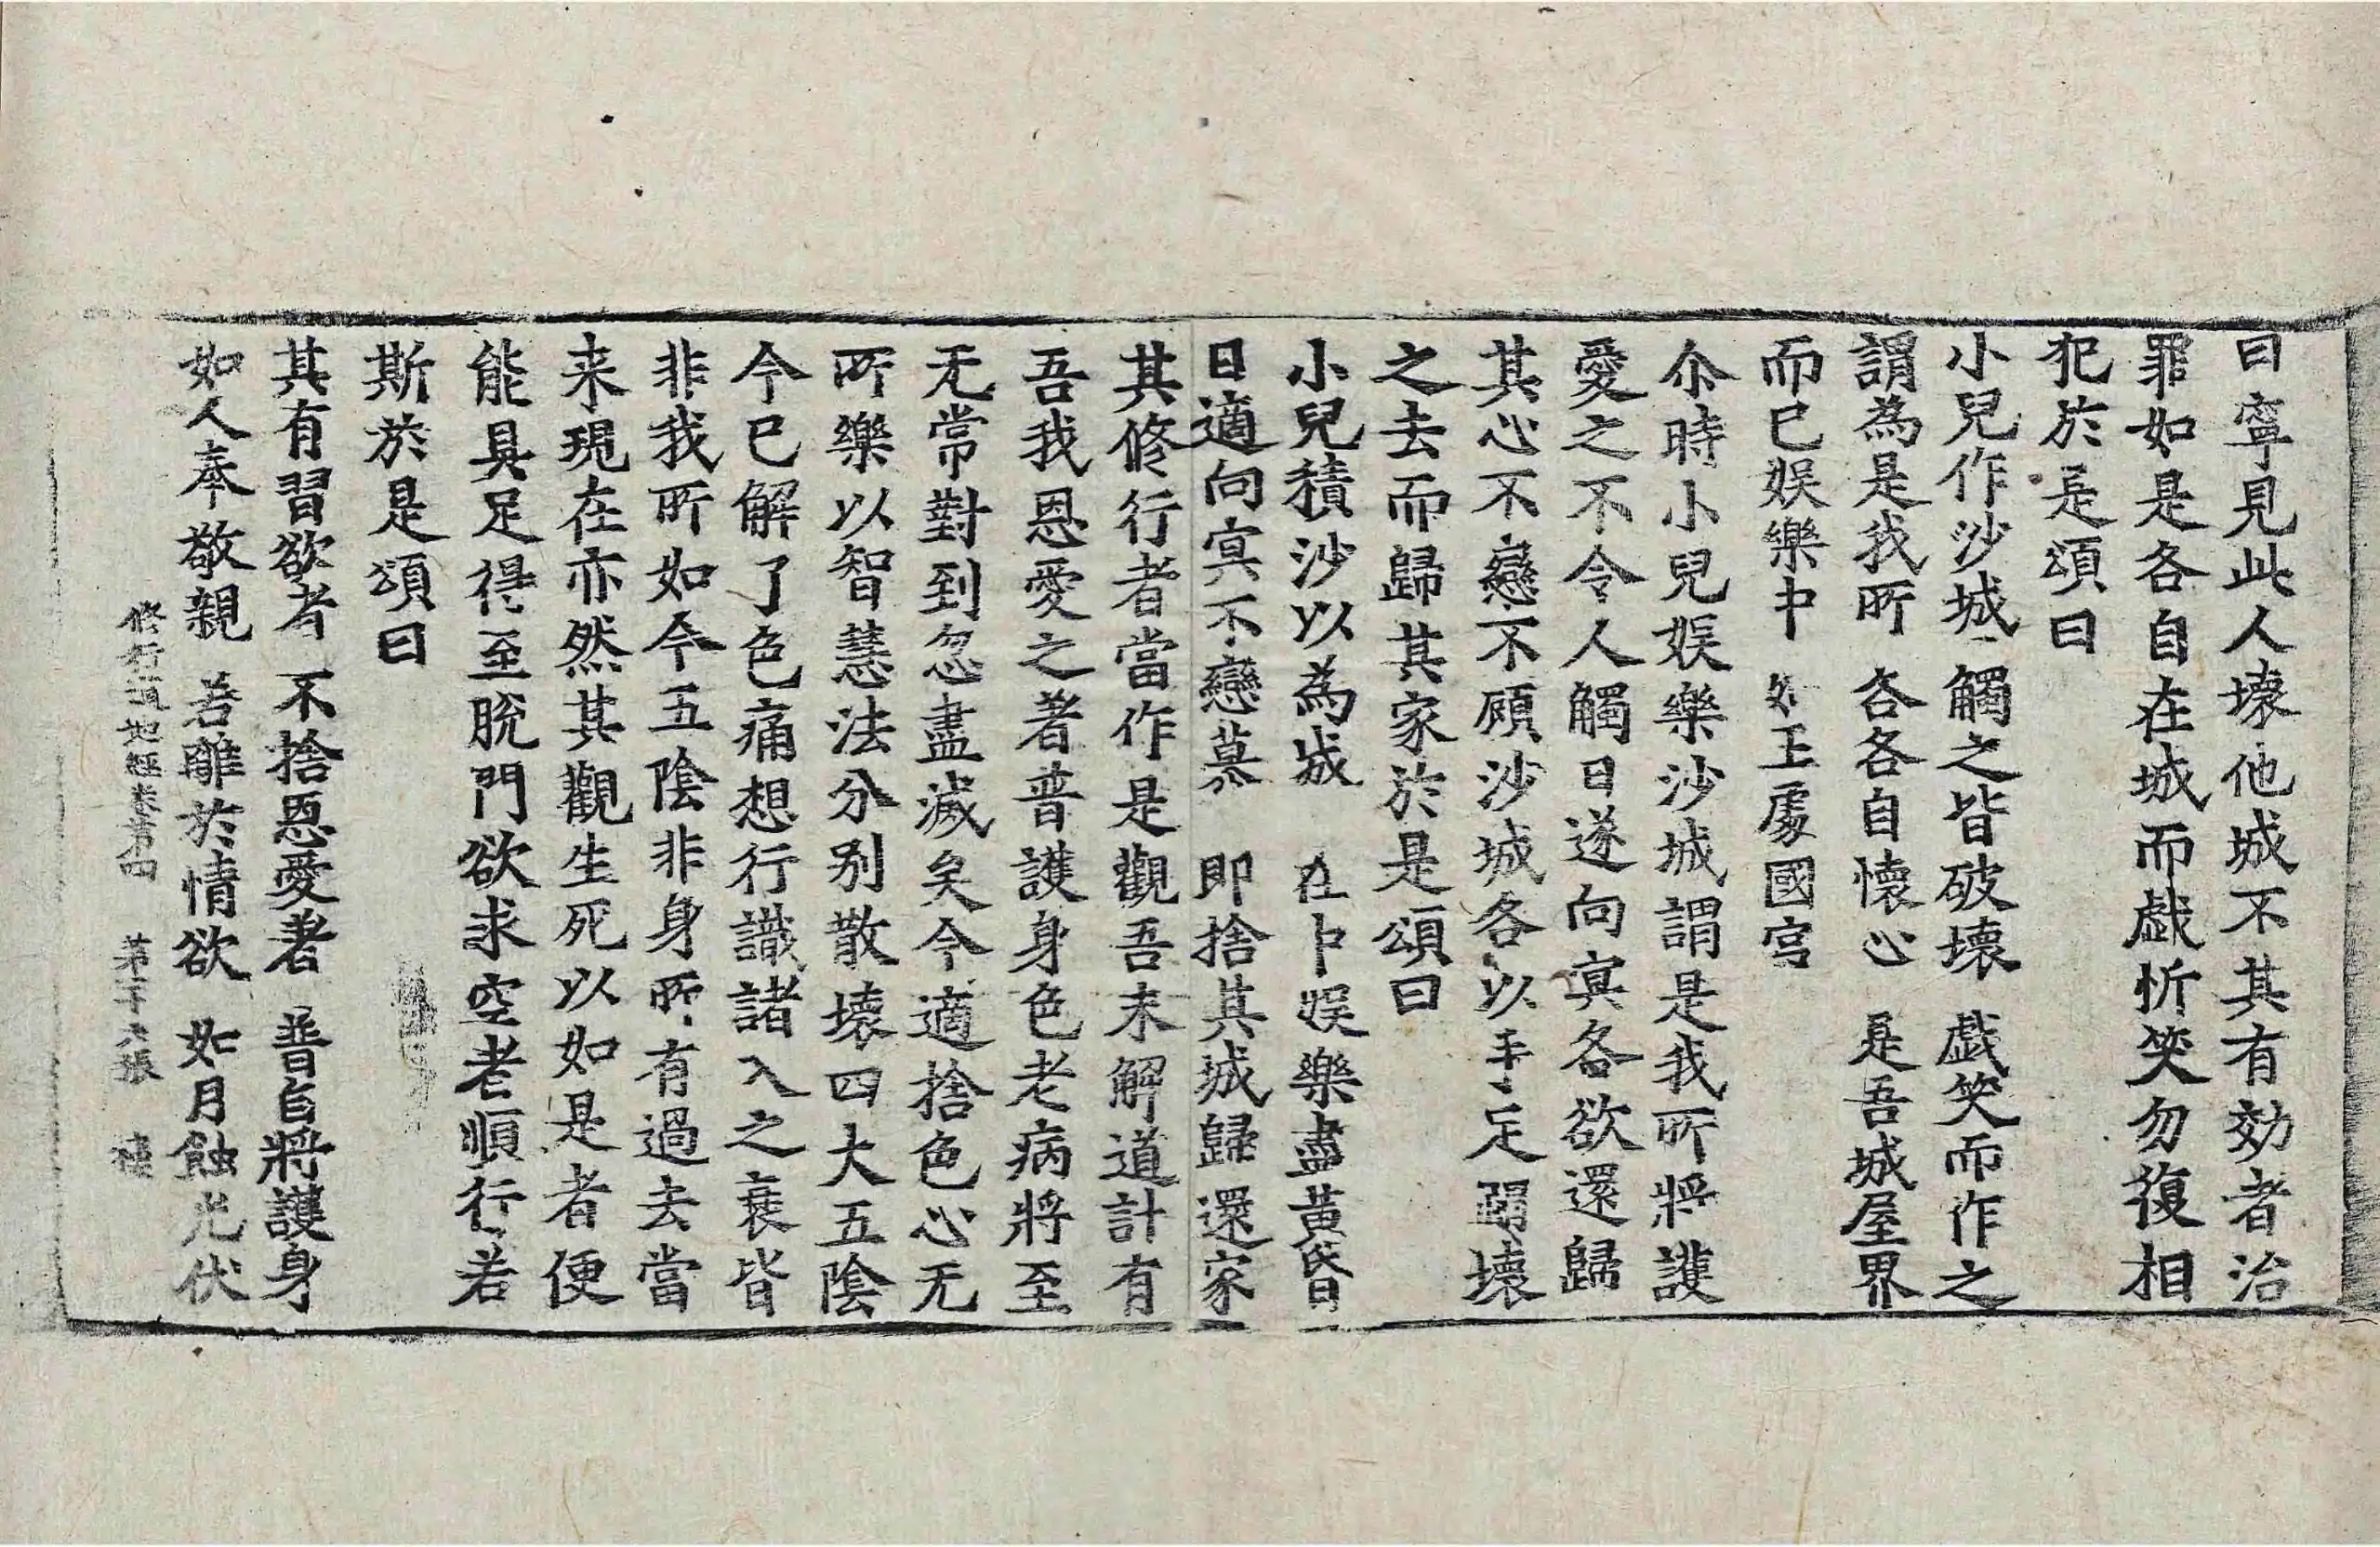 曰寧見此人壞他城不其有効者治
罪如是各自在城而戱忻笑勿復相
犯於是頌曰
小兒作沙城 觸之皆破壞 戱笑而作之
謂為是我所 各各自懷心 是吾城屋界
而已娛樂中 如王處國宮
尒時小兒娛樂沙城謂是我所將護
愛之不令人觸日遂向㝠各欲還歸
其心不戀不顧沙城各以手足蹋壞
之去而歸其家於是頌曰
小兒積沙以為城 在中娛樂盡黃昬
日適向㝠不戀慕 即捨其城歸還家
其修行者當作是觀吾未解道計有
吾我恩愛之著普護身色老病將至
无常對到忽盡滅矣今適捨色心无
所樂以智慧法分別散壞四大五陰
今已解了色痛想行識諸入之衰皆
非我所如今五陰非身所有過去當
来現在亦然其觀生死以如是者便
能具足得至脫門欲求空者順行若
斯於是頌曰
其有習欲者 不捨恩愛著 普自將護身
如人奉敬親 若離於情欲 如月蝕光伏
修行道地經卷第四 第二十六張